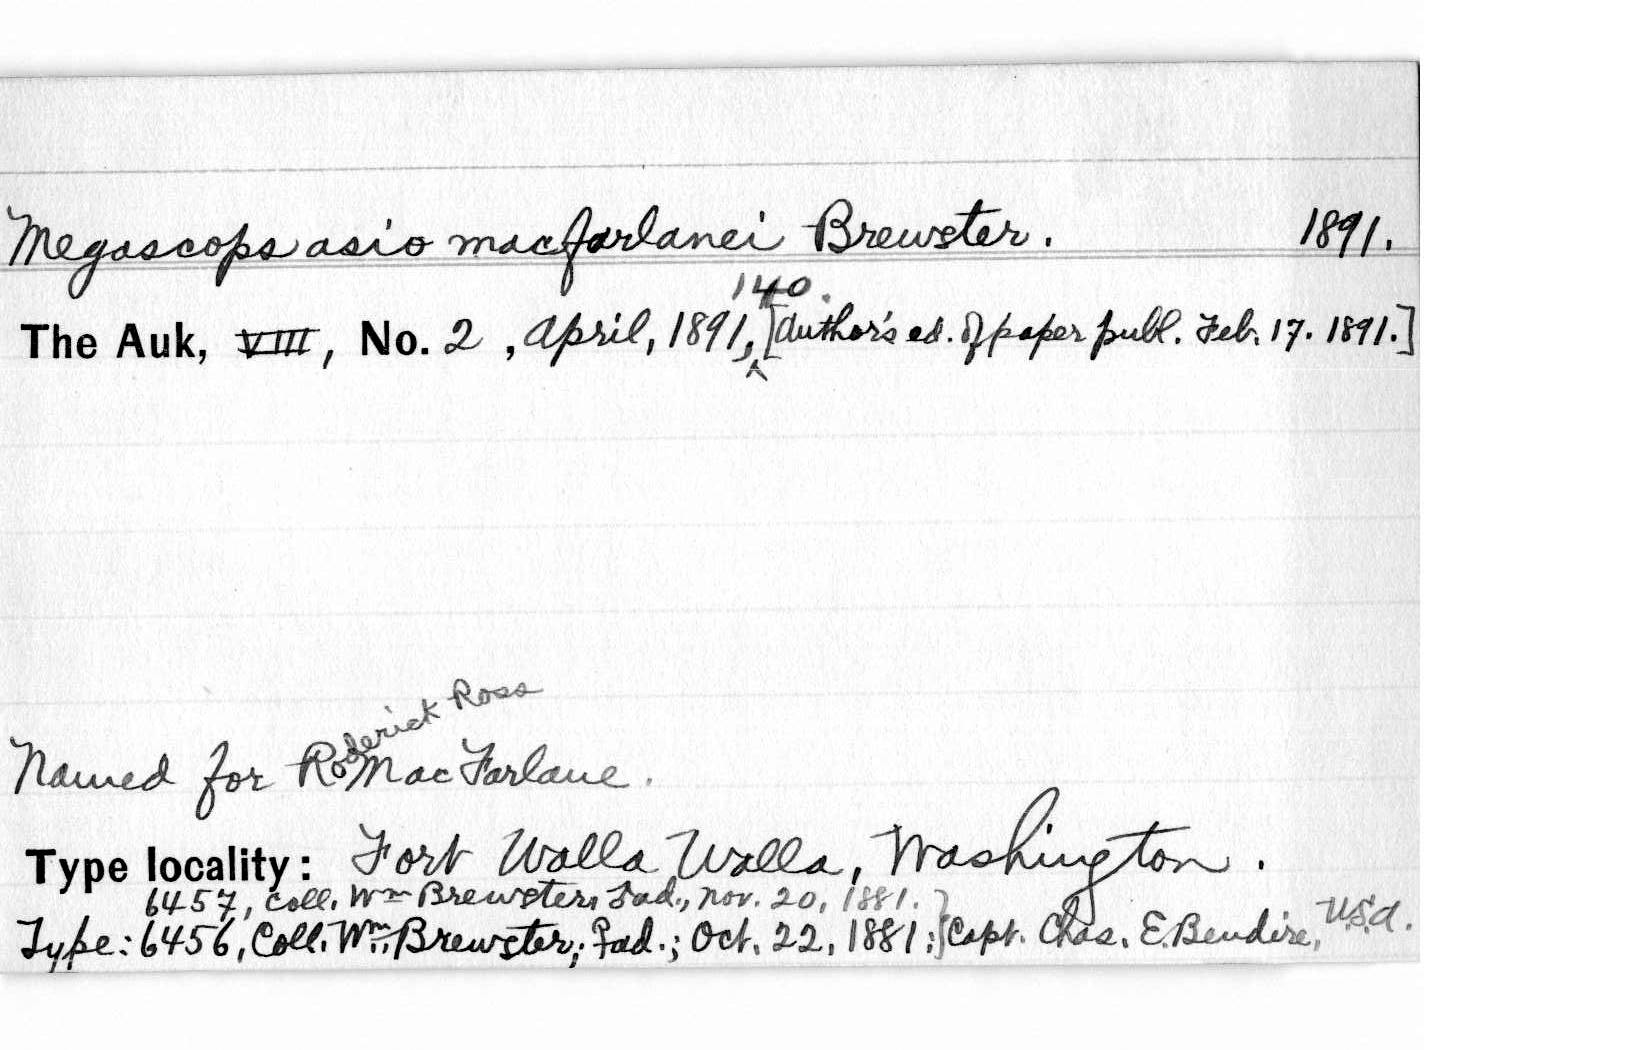 Megascops asio macfarlanei Brewster. 1891.
140.
The Auk, VIII, No. 2, April, 1891, [Author's ed. of paper publ. Feb. 17. 1891.]
Roderick Ross
Named for R. MacFarlane.
Type locality: Fort Walla Walla, Washington.
6457, Coll. Wm Brewster, ad., Nov. 20, 1881.}
Type: 6456, Coll. Wm. Brewster; ad.; Oct. 22, 1881; {Capt. Chas. E. Bendire, U.S.A.